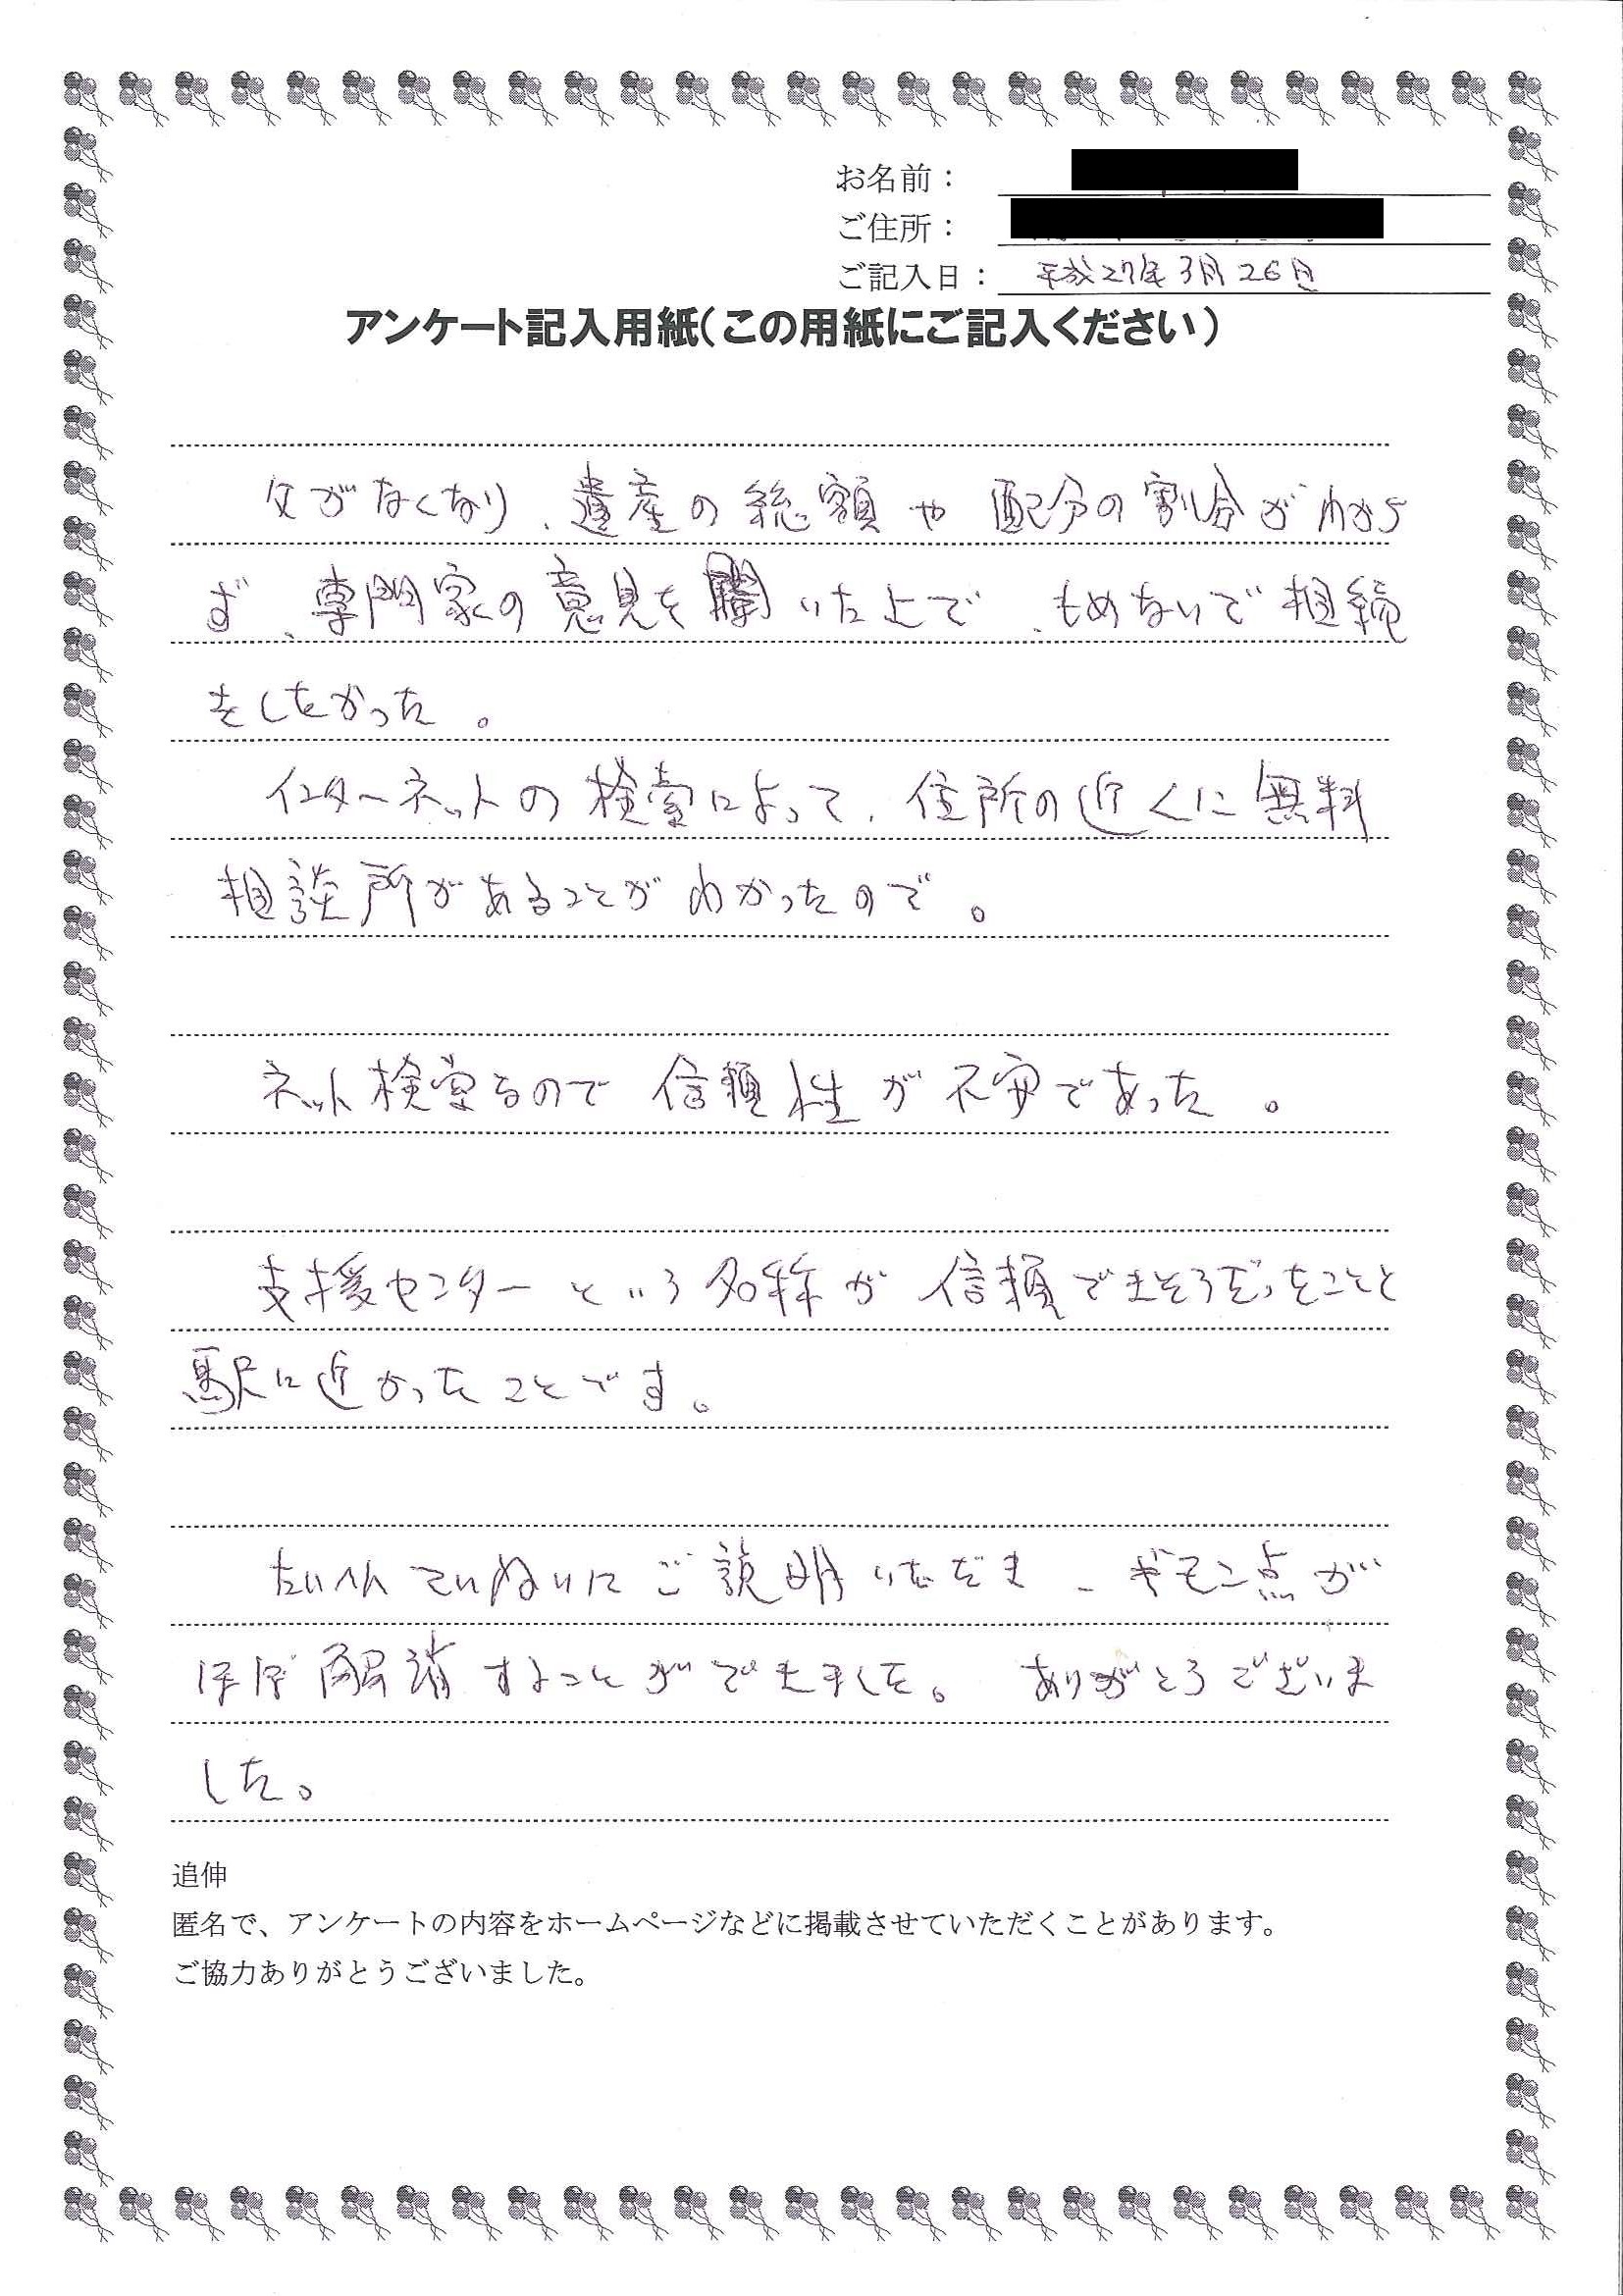 お名前：
ご住所：
ご記入日： 平成27年3月26日
アンケート記入用紙（この用紙にご記入ください）
父がなくなり、遺産の総額や配分の割合がわから
ず、専門家の意見を聞いた上で、もめないで相続
をしたかった。
インターネットの検索によって、住所の近くに無料
相談所があることがわかったので。
ネット検索なので信頼性が不安であった。
支援センターという名称が信頼できそうだったことと
駅に近かったことです。
たいへんていねいにご説明いただき、ギモン点が
ほぼ解消することができました。 ありがとうございま
した。
追伸
匿名で、アンケートの内容をホームページなどに掲載させていただくことがあります。
ご協力ありがとうございました。